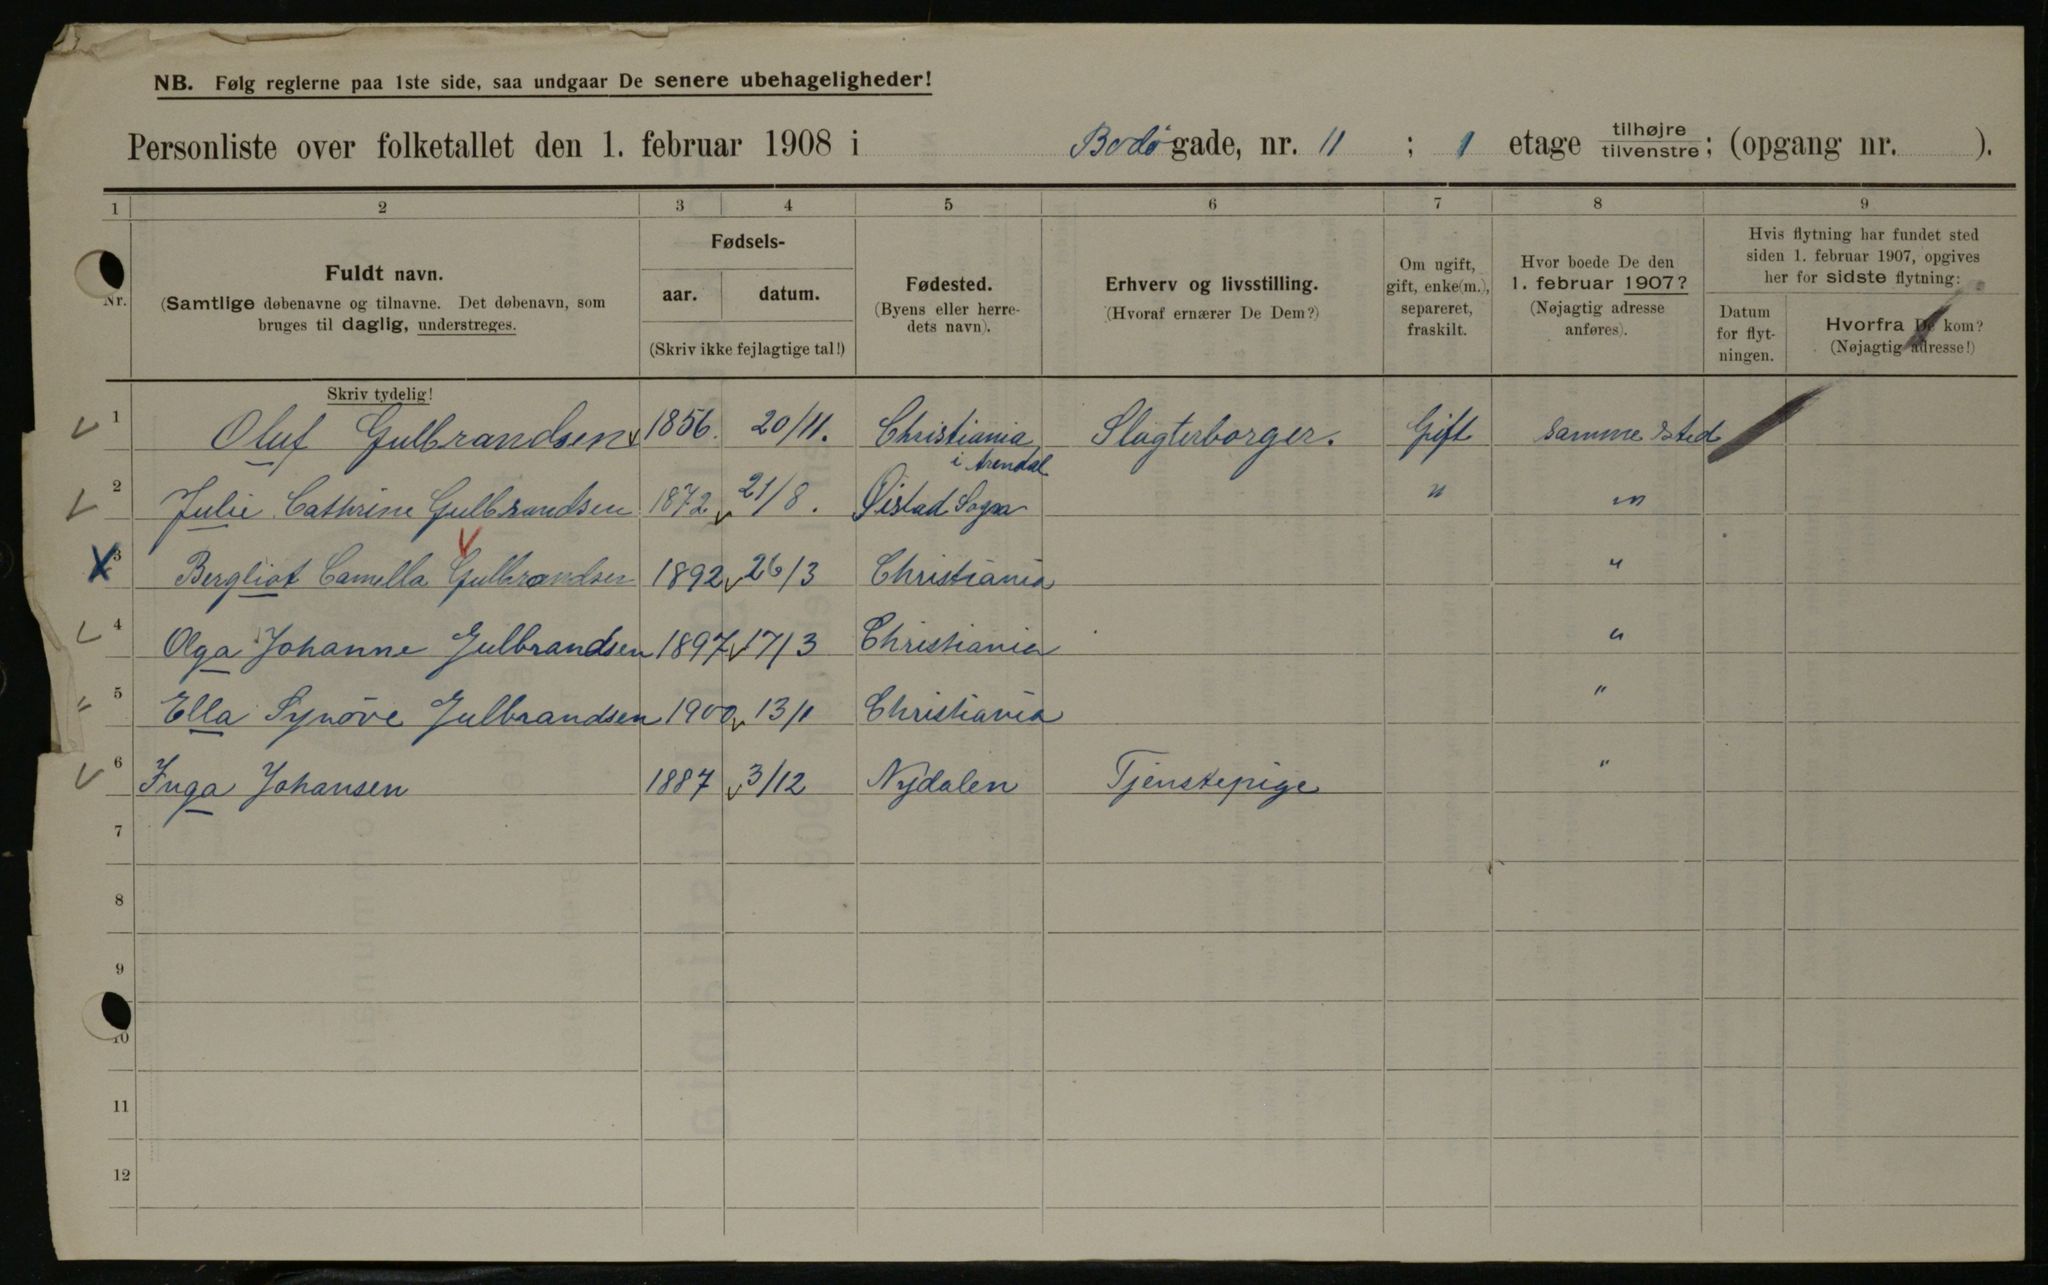 NB. Følg reglerne paa 1ste side, saa undgaar De senere ubehageligheder!
Personliste over folketallet den 1. februar 1908 i Bodø gade, nr. 11 ; 1 etage tilhøjre tilvenstre; (opgang nr. ).
1 2 3 4 5 6 7 8 9
Nr.
Fuldt navn.
(Samtlige døbenavne og tilnavne. Det døbenavn, som
bruges til daglig, understreges.
Fødsels-
aar. datum.
(Skriv ikke fejlagtige tal!)
Fødested.
(Byens eller herre-
dets navn).
Erhverv og livsstilling.
(Hvoraf ernærer De Dem?)
Om ugift,
gift, enke(m.),
separeret,
fraskilt.
Hvor boede De den
1. februar 1907?
(Nøjagtig adresse
anføres).
Hvis flytning har fundet sted
siden 1. februar 1907, opgives
her for sidste flytning:
Datum
for flyt-
ningen.
Hvorfra De kom?
(Nøjagtig adresse!)
Skriv tydelig!
1 Oluf Gulbrandsen 1856. 20/11. Christiania Slagterborger. Gift samme sted
i Arendal
2 Julie Cathrine Gulbrandsen 1872 21/8. Øistad Sogn " "
3 Bergliot Camella Gulbrandsen 1892 26/3 Christiania "
4 Olga Johanne Gulbrandsen 1897 17/3 Christiania "
5 Ella Synøve Gulbrandsen 1900 13/1 Christiania "
6 Inga Johansen 1887 3/12 Nydalen Tjenstepige "
7
8
9
10
11
12